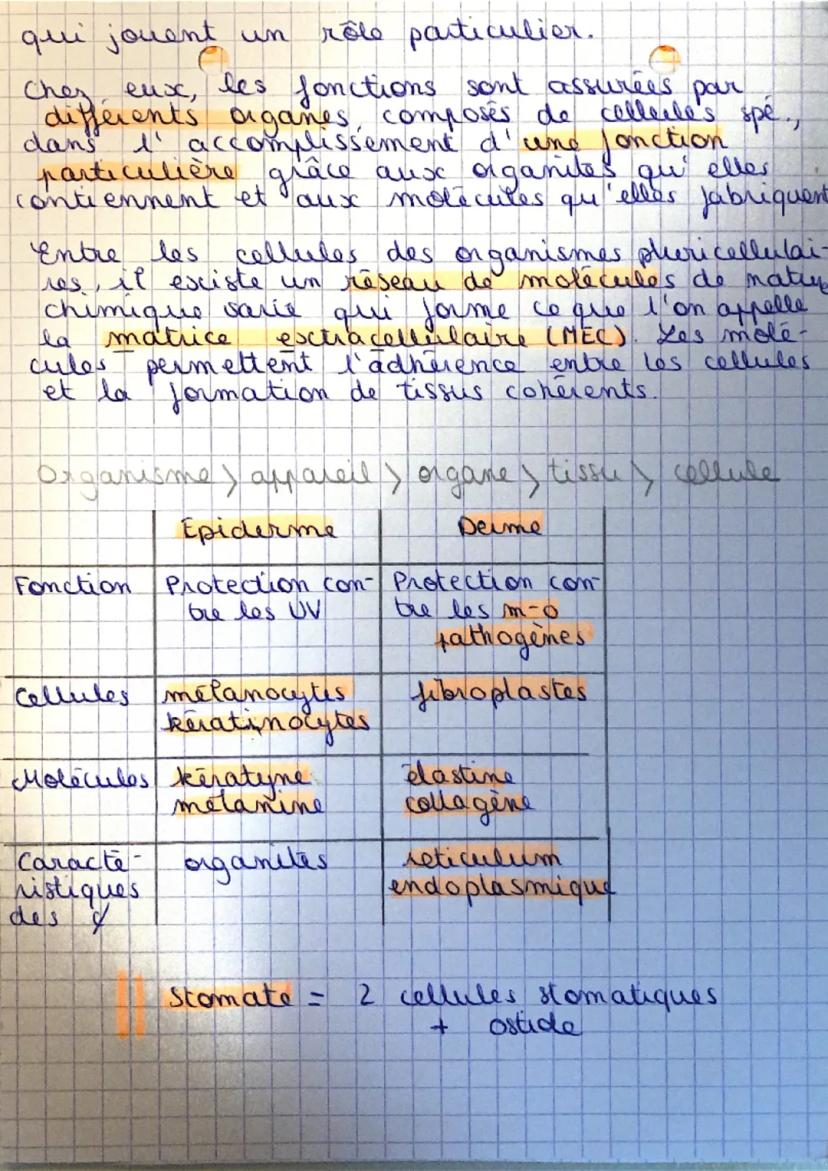 qui jouent un rôle particulier.
Chez eux, les fonctions sont assurées par
différents organes, composés de cellules spé.,
dans l'accomplissement d'une fonction
particulière grâce aux organites qu'elles
contiennent et aux molécules qu'elles fabriquent
Entre les cellules des organismes pluricellulai-
res, il existe un réseau de molécules de nature
chimique varié qui forme ce que l'on appelle
la matrice extracellulaire (MEC). Les molé-
cules permettent l'adhérence entre les cellules
et la formation de tissus cohérents.
Organisme > appareil > organe > tissu > cellule
Épiderme Derme
Fonction Protection con- Protection con-
tre les UV tre les m-o
pathogènes
Cellules mélanocytes fibroplastes
kératinocytes
Molécules kératyne élastine
mélanine collagène
Caracté- organites reticulum
ristiques endoplasmique
des ¢
Stomate = 2 cellules stomatiques
+ ostiole